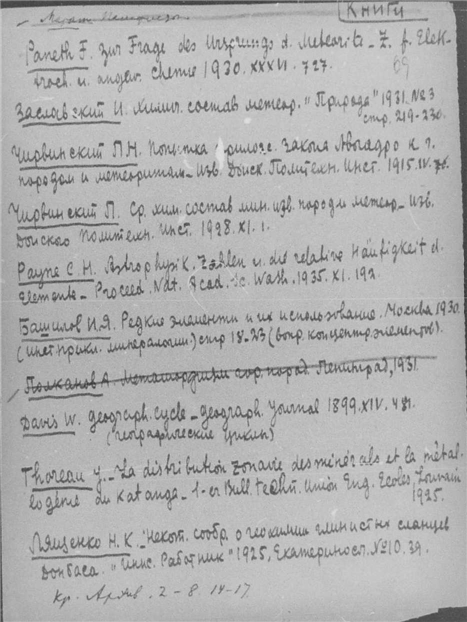 Книги
69
Paneth F. zur Frage des Ursprungs d. Meteorite - Z. f. Elek-
troch. u. angew. Chemie 1930. XXXVI. 727.
Заславский И. Химич. состав метеор. "Природа" 1931. № 3
стр. 219-230.
Чирвинский П.Н. Попытка прилож. закона Авогадро к г.
породам и метеоритам - Изв. Донск. Политехн. Инст. 1915. IV.
Чирвинский П. Ср. хим. состав мин. изв. пород и метеор. - Изв.
Донского Политехн. Инст. 1928. XI. 1.
Payne C. H. Astrophysik. Zahlen u. die relative Häufigkeit d.
Elemente - Proceed. Nat. Acad. Sc. Wash. 1935. XI. 192.
Башилов И.Я. Редкие элементы и их использование. Москва 1930.
(инст. прикл. минералогии) стр 18-23 (вопр. концентр. элементов).
Полканов А. Метаморфизм гор. пород. Ленинград, 1931
Davis W. geograph. cycle - geograph. Journal 1899. XIV. 481.
(географические циклы)
Thoreau J. - La distribution zonaire des minérals et la métal-
logénie du Katanga - 1-er Bull. techn. Union Eng. Ecoles, Louvain
1925.
Лященко Н. К. - Некот. сообр. о геохимии глинистых сланцев
Донбаса. "Инж. Работник" 1925, Екатериносл. № 10. 39.
Кр. Архив. 2 - 8. 14-17